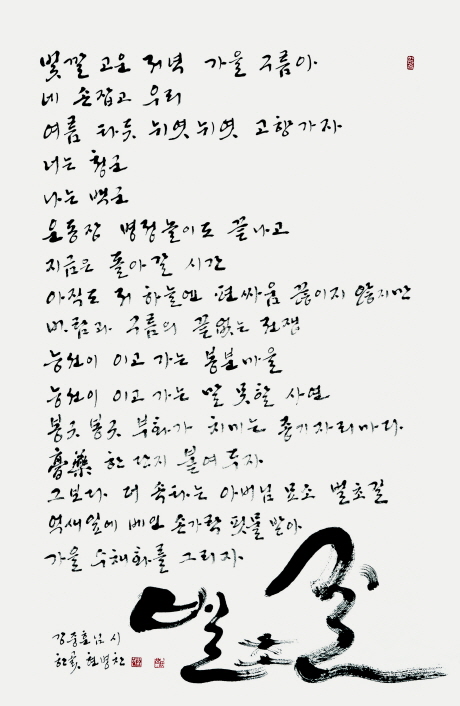 빛깔 고운 저녁 가을 구름아
네 손잡고 우리
여름 타듯 뉘엿뉘엿 고향가자
너는 청군
나는 백군
운동장 병정놀이도 끝나고
지금은 돌아갈 시간
아직도 저 하늘엔 편싸움 끊이지 않지만
바람과 구름의 끝없는 전쟁
능선이 이고 가는 봉분마을
능선이 이고 가는 말 못할 사연
봉긋봉긋 부화가 치미는 종기자리마다
膏藥 한 단지 붙여두자
그보다 더 속타는 아버님 묘소 벌초길
억새잎에 베인 손가락 핏물 받아
가을 수채화를 그리자
벌초길
님 시